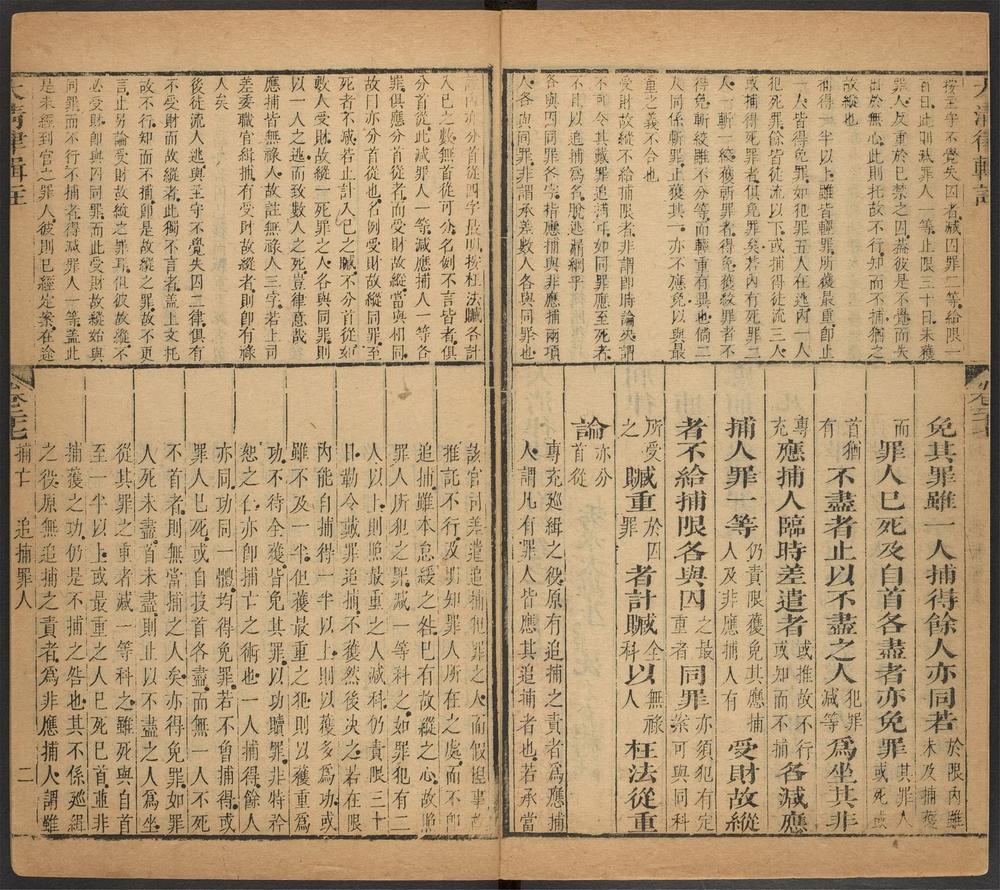 大清律輯註
按主守不覺失囚者減囚罪二等給限一
百日此則減罪人一等止限三十日未獲
罪人反重於已禁之囚蓋彼是不覺而失
出於無心此則托故不行知而不捕猶之
故縱也
捕得一半以上雖首輕罪所獲最重即止
一人皆得免罪如犯罪五人在逃內一人
犯死罪餘皆徒流以下或捕得徒流三人
或捕得死罪者俱免罪矣若內有死罪二
人一斬一絞獲斬罪者得免獲絞罪者不
得免斬絞雖不分等而輕重有異也倘二
人同係斬罪止獲其一亦不應免以與最
重之義不合也
受財故縱不給捕限者非謂即時論決謂
不可令其戴罪追捕也如同罪應至死者
不且以追捕爲名脫逃漏網乎
各與囚同罪各字指應捕與非應捕兩項
人各與同罪非謂承差數人各與同罪也
卷二十七
免其罪雖一人捕得餘人亦同若於限內雖未及捕獲
而罪人已死及自首各盡者亦免罪其罪人或死或
首猶有不盡者止以不盡之人犯罪減等爲坐其非
專充應捕人臨時差遣者或推故不行或知而不捕各減應
捕人罪一等仍責限獲免其應捕人及非應捕人有受財故縱
者不給捕限各與囚之最重者同罪亦須犯有定案可與同科
所受之贓重於囚罪者計贓全科以無祿人枉法從重
論亦分首從
專充巡緝之役原有追捕之責者爲應捕
人謂凡有罪人皆應其追捕者也若承當
內亦分首從四字最明按枉法贓各計
入已之數無首從可分名例不言皆者俱
分首從此減罪人一等減應捕人一等各
罪俱應分首從者而受財故縱當與相同
故曰亦分首從也名例受財故縱同罪至
死者不減若止計入己之贓不分首從如
數人受財故縱一死罪之人各與同罪則
以一人之逃而致數人之死豈律意哉
應捕皆無祿人故註無祿人三字若上司
差委職官緝捕有受財故縱者則卽有祿
人矣
後徒流人逃與主守不覺失囚二律俱有
不受財而故縱者此獨不言者蓋上文托
故不行知而不捕卽是故縱之罪故不更
言止另論受財故縱之罪耳但彼故縱不
必受財卽與囚同罪而此受財故縱始與
同罪而不行不捕者得減罪人一等蓋此
是未經到官之罪人彼則已經定案在途
該官司差遣追捕犯罪之人而假捏事故
推託不行及明知罪人所在之處而不卽
追捕雖本怠緩之咎已有故縱之心故照
罪人所犯之罪減一等科之如罪犯有二
人以上則照最重之人減科仍責限三十
日勒令戴罪追捕不獲然後決之若在限
內能自捕得一半以上則以獲多爲功或
雖不及一半但獲最重之犯則以獲重爲
功不待全獲皆免其罪以功贖罪非特矜
恕之仁亦卽捕亡之術也一人捕得餘人
亦同功同一體均得免罪若不曾捕得或
罪人已死或自投首各盡而無一人不死
不首者則無當捕之人矣亦得免罪如罪
人死未盡首未盡則止以不盡之人爲坐
從其罪之重者減一等科之雖死與自首
至一半以上或最重之人已死已首並非
捕獲之功仍是不捕之咎也其不係巡緝
之役原無追捕之責者爲非應捕人謂雖
大清律輯註
卷二十七
捕亡
追捕罪人
二